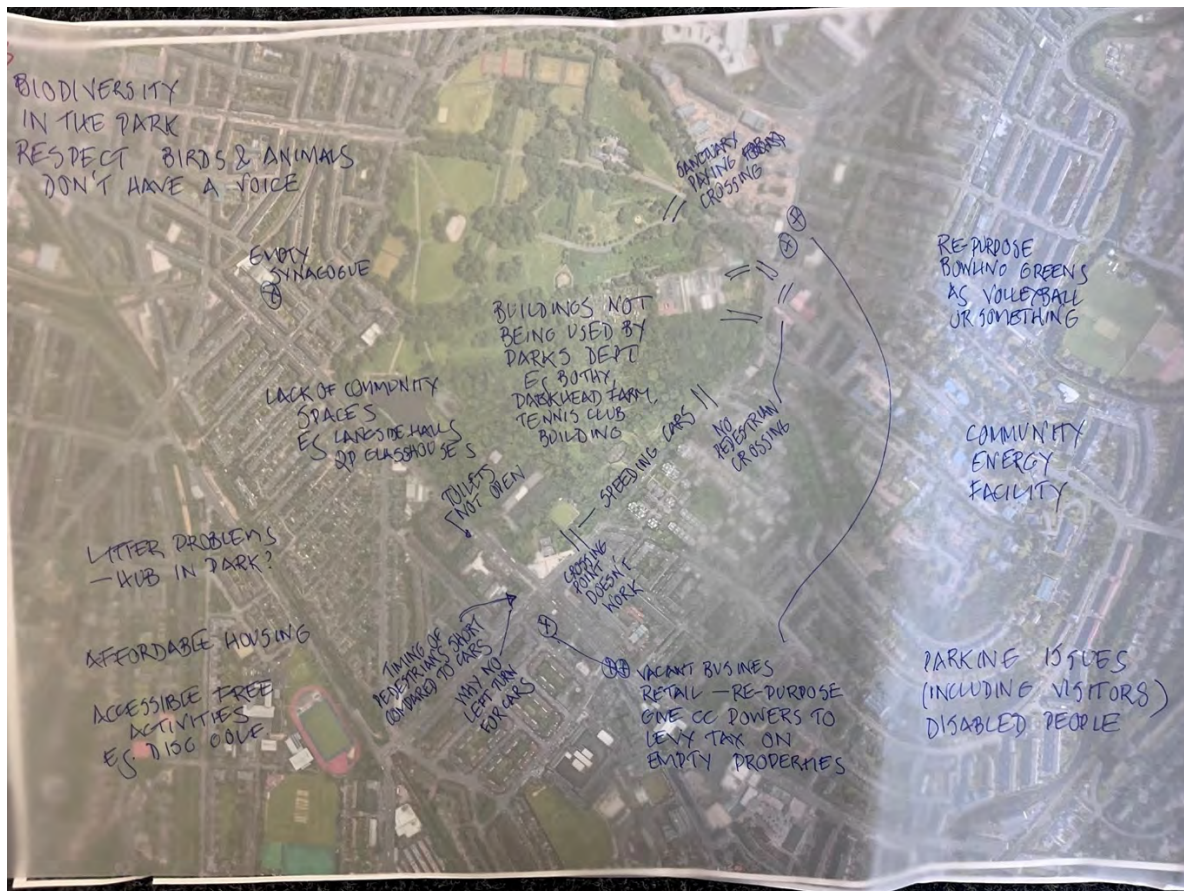 BIODIVERSITY
IN THE PARK
RESPECT BIRDS & ANIMALS
DON'T HAVE A VOICE
SANCTUARY
PAYING FOR
CROSSING
EMPTY
SYNAGOGUE
RE-PURPOSE
BOWLING GREENS
AS VOLLEYBALL
OR SOMETHING
BUILDINGS NOT
BEING USED BY
PARKS DEPT
EG BOTHY,
FARM,
TENNIS CLUB
BUILDING
LACK OF COMMUNITY
SPACES
EG LANGSIDE HALLS
QP GLASSHOUSES
SPEEDING CARS
NO
PEDESTRIAN
CROSSING
COMMUNITY
ENERGY
FACILITY
TOILETS
NOT OPEN
LITTER PROBLEMS
— HUB IN PARK?
CROSSING
POINT
DOESN'T
WORK
AFFORDABLE HOUSING
ACCESSIBLE FREE
ACTIVITIES
EG. DISC GOLF
TIMING OF
PEDESTRIANS SHORT
COMPARED TO CARS
WHY NO
LEFT TURN
FOR CARS
VACANT BUSINES
RETAIL — RE-PURPOSE
GIVE CC POWERS TO
LEVY TAX ON
EMPTY PROPERTIES
PARKING ISSUES
(INCLUDING VISITORS)
DISABLED PEOPLE